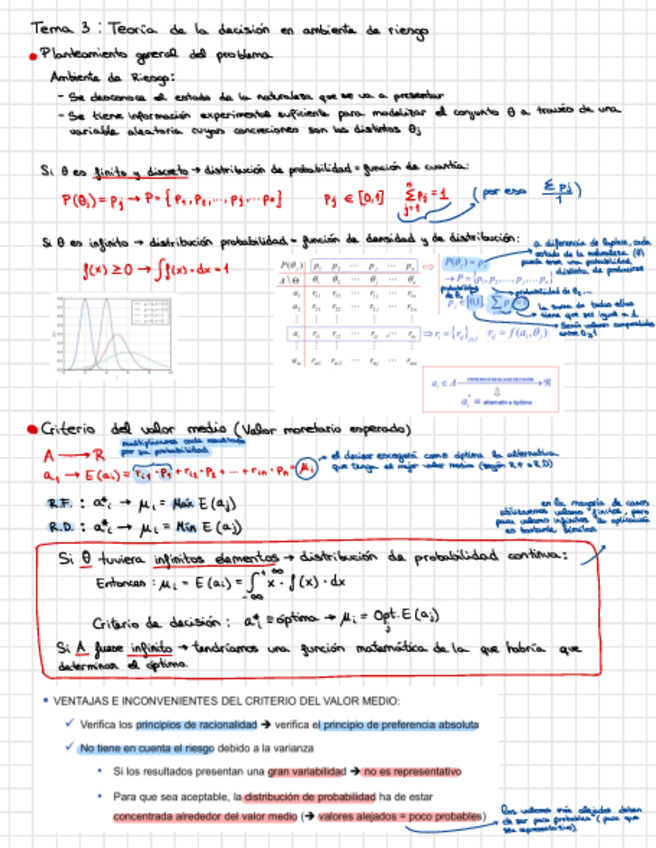 Tema 3 : Teoría de la decisión en ambiente de riesgo
• Planteamiento general del problema
Ambiente de Riesgo:
- Se desconoce el estado de la naturaleza que se va a presentar
- Se tiene información experimental suficiente para modelizar el conjunto θ a través de una
variable aleatoria cuyas concreciones son los distintos θj
Si θ es finito y discreto → distribución de probabilidad = función de cuantía:
P(θj) = Pj → P = { P1, P2, ..., Pj ... Pn } Pj ∈ [0,1] Σ Pj = 1 (por eso Σ Pj / 1)
Si θ es infinito → distribución probabilidad = función de densidad y de distribución:
f(x) ≥ 0 → ∫ f(x) · dx = 1
a diferencia de Laplace, cada
estado de la naturaleza (θ)
puede tener una probabilidad
distinta de producirse
P(θj) p1 p2 ... pj ... pn
A\Θ θ1 θ2 ... θj ... θn
a1 r11 r12 ... r1j ... r1n
a2 r21 r22 ... r2j ... r2n
ai ri1 ri2 ... rij ... rin
am rm1 rm2 ... rmj ... rmn
P(θj) = pj
→ P = {p1, p2, ..., pj, ..., pn}
probabilidad de θ1
pj ∈ [0,1], Σ pj = 1
la suma de todas ellas
tiene que ser igual a 1
Serán valores comprendidos
entre 0 y 1
⇒ ri = {rij} rij = f(ai, θj)
ai ∈ A CRITERIO REGLA DE DECISIÓN → ℜ
ai* ≡ alternativa óptima
• Criterio del valor medio (Valor monetario esperado)
multiplicamos cada resultado
por su probabilidad
A → R
ai → E(ai) = ri1 · P1 + ri2 · P2 + ... + rin · Pn = μi
el decisor escogerá como óptima la alternativa
que tenga el mejor valor medio (según R.F o R.D)
R.F. : ai* → μi = Máx E(aj)
R.D. : ai* → μi = Mín E(aj)
en la mayoría de casos
utilizaremos valores finitos, pero
para valores infinitos la aplicación
es bastante similar
Si θ tuviera infinitos elementos → distribución de probabilidad continua:
Entonces : μi = E(ai) = ∫ x · f(x) · dx
Criterio de decisión : ai* ≡ óptima → μi = Opt. E(aj)
Si A fuese infinito → tendríamos una función matemática de la que habría que
determinar el óptimo.
▪ VENTAJAS E INCONVENIENTES DEL CRITERIO DEL VALOR MEDIO:
✓ Verifica los principios de racionalidad → verifica el principio de preferencia absoluta
✓ No tiene en cuenta el riesgo debido a la varianza
• Si los resultados presentan una gran variabilidad → no es representativo
• Para que sea aceptable, la distribución de probabilidad ha de estar
concentrada alrededor del valor medio (→ valores alejados = poco probables)
los valores más alejados deben
de ser poco probables (para que
sea representativo)